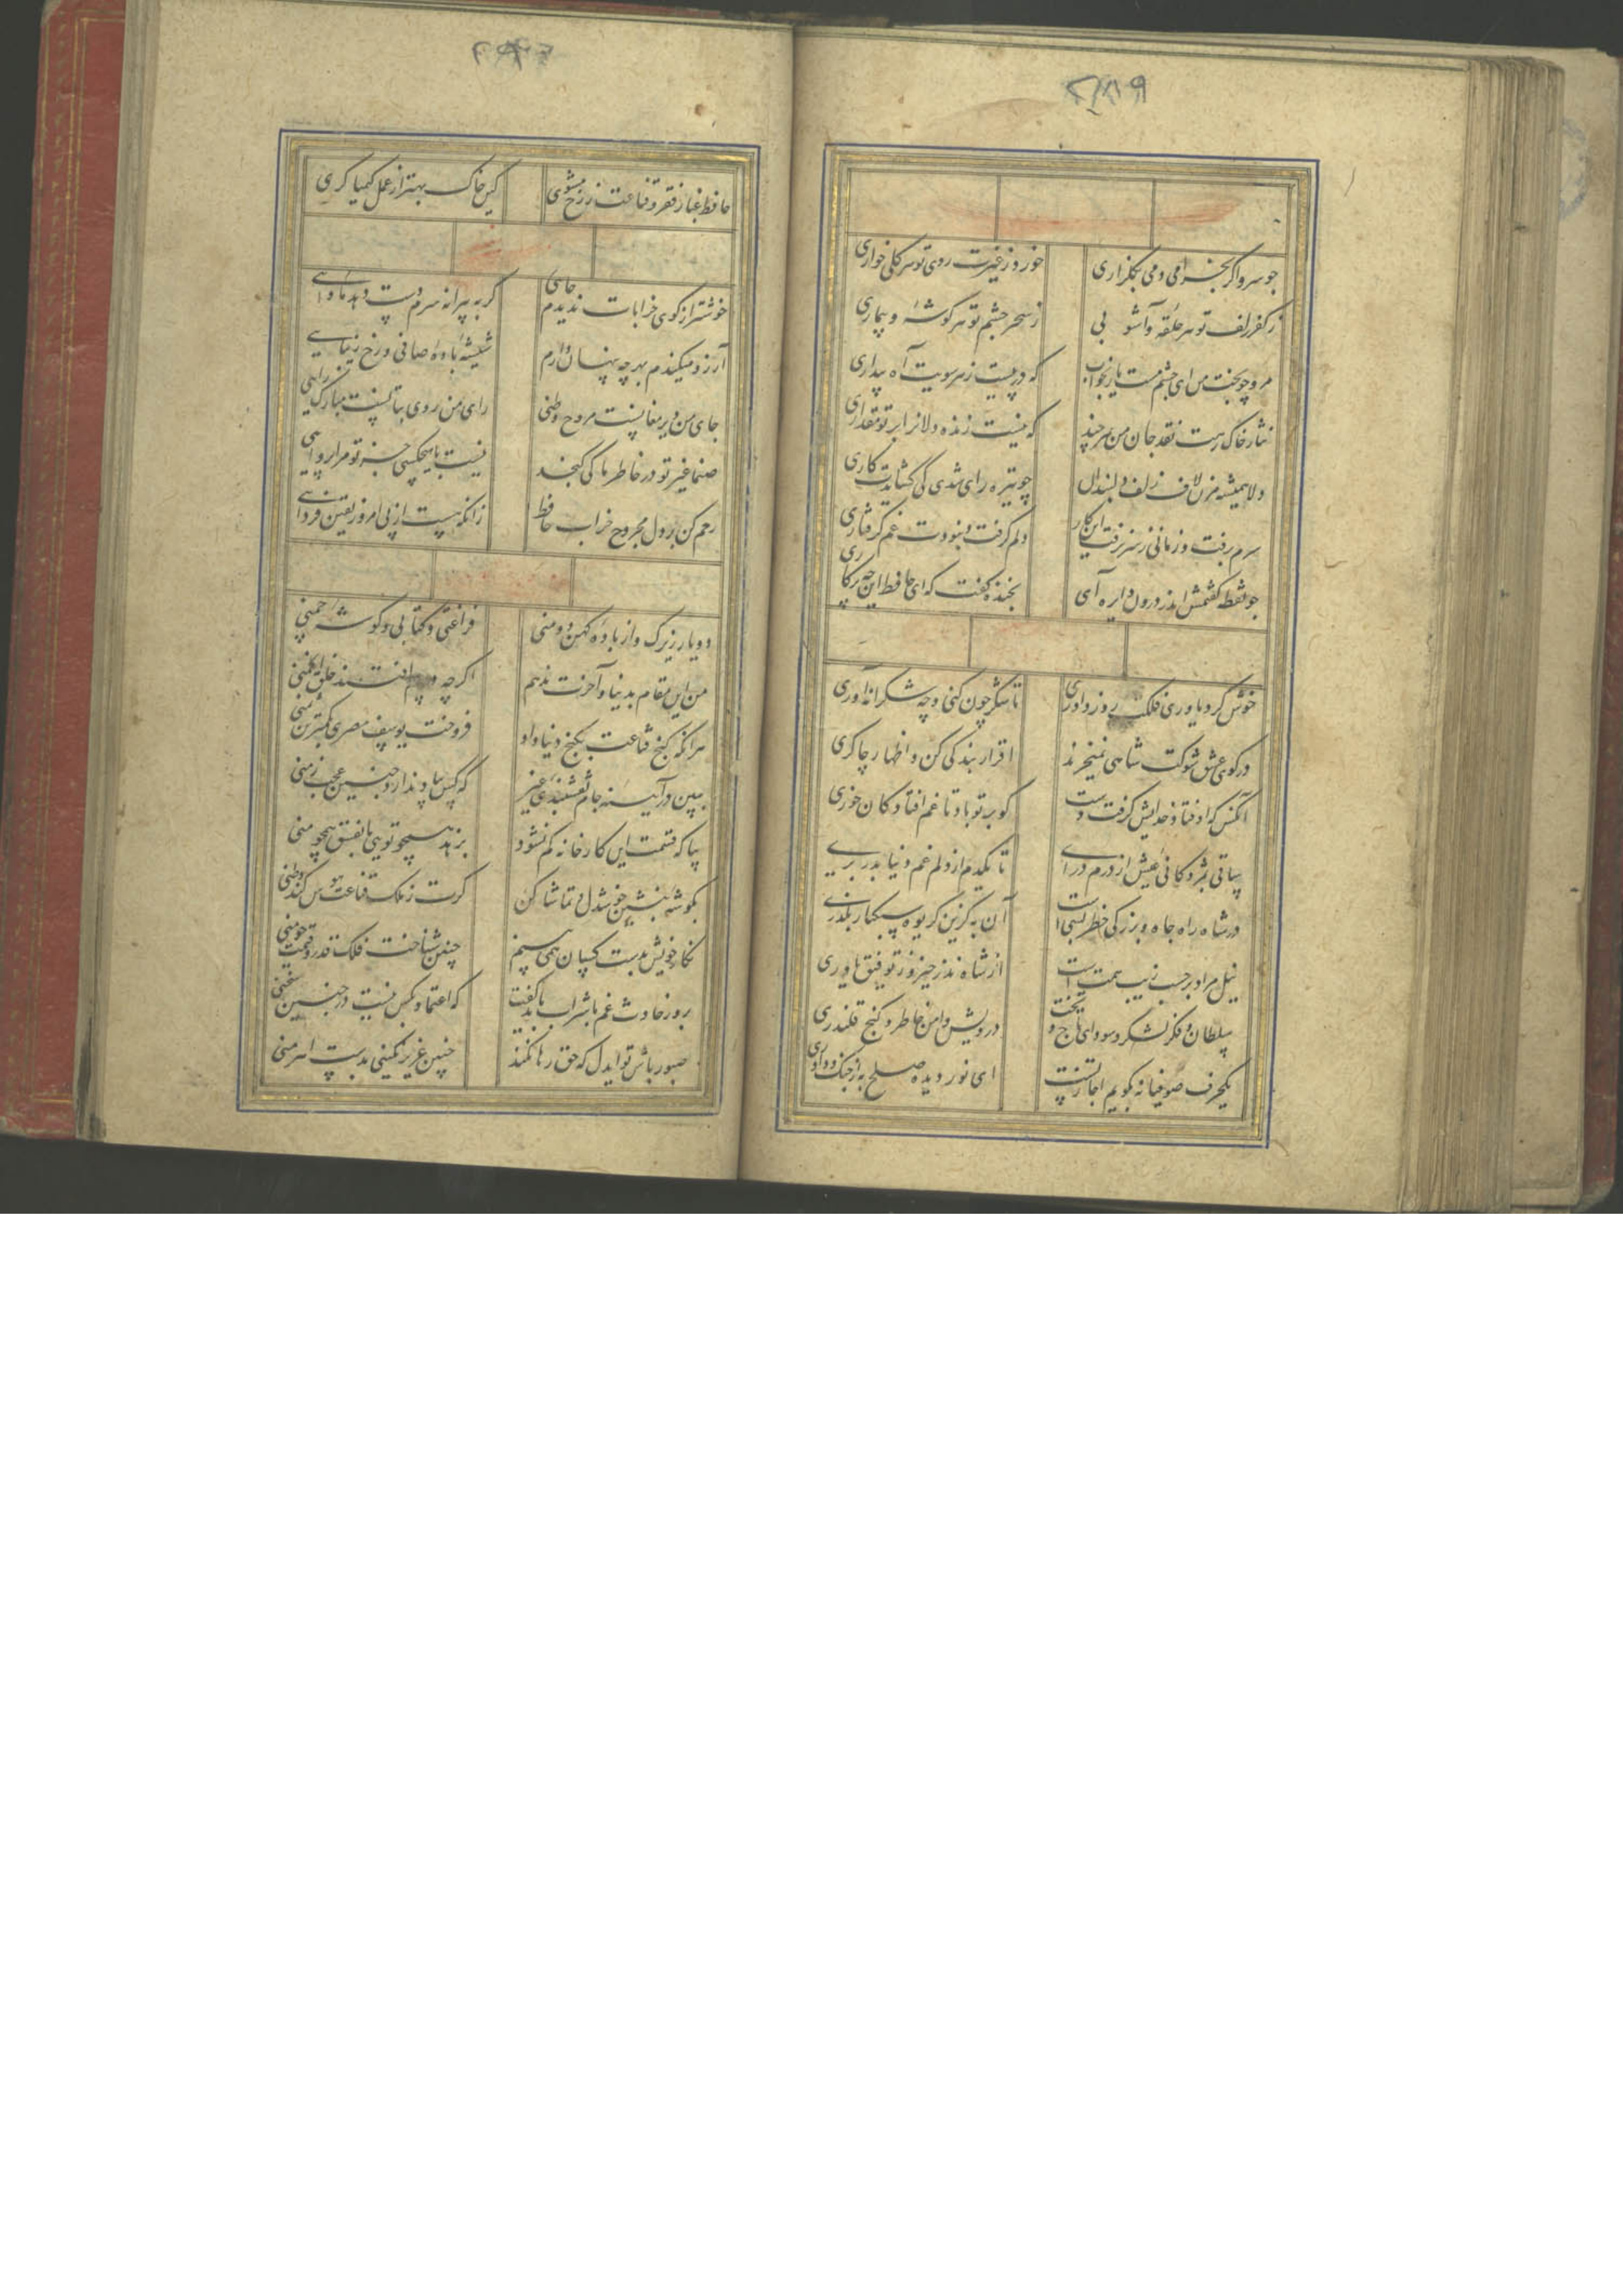 چو سرو اگر بخرامی دمی بگلزاری
خورد ز غیرت روی تو هر گلی خواری
ز کفر زلف تو هر حلقه و آشوبی
ز سحر چشم تو هر گوشه و بیماری
مرو چو بخت من ای چشم مست یار بخواب
که در پیست ز هر سویت آه بیداری
نثار خاک رهت نقد جان من هر چند
که نیست نقد روان را بر تو مقداری
دلا همیشه مزن لاف زلف دلبندان
چو تیره رای شدی کی گشایدت کاری
سرم برفت و زمانی بسر نرفت این کار
دلم گرفت و نبودت غم گرفتاری
چو نقطه گفتمش اندر درون دایره آی
بخنده گفت که ای حافظ این چه پرگاری
خوش کرد یاوری فلکت روز داوری
تا شکر چون کنی و چه شکرانه آوری
در کوی عشق شوکت شاهی نمیخرند
اقرار بندگی کن و اظهار چاکری
آنکس که اوفتاد خدایش گرفت دست
گو بر تو باد تا غم افتادگان خوری
ساقی بمژدگانی عیش از درم درآی
تا یکدم از دلم غم دنیا بدر بری
در شاه راه جاه و بزرگی خطر بسی است
آن به کزین گریوه سبکبار بگذری
نیل مراد بر حسب همت است
از شاه نذر خیر و ز توفیق یاوری
سلطان و فکر لشکر و سودای تاج و تخت
درویش و امن خاطر و کنج قلندری
یکحرف صوفیانه بگویم اجازتست
ای نور دیده صلح به از جنگ و داوری
حافظ غبار فقر و قناعت ز رخ مشوی
کین خاک بهتر از عمل کیمیا گری
خوشتر از کوی خرابات ندیدم جای
گر به پیرانه سرم دست دهد ماوای
آرزو میکندم هر چه پنهان دارم
شیشه باده صافی و رخ زیبای
جای من دیر مغانست مروح وطنی
رای من روی بتانست مبارک رایی
صنما غیر تو در خاطر ما کی گنجد
نیست با هیچکسی جز تو مرا پروایی
رحم کن بر دل مجروح خراب حافظ
زانکه هست از پی امروز یقین فردای
دو یار زیرک و از باده کهن دو منی
فراغتی و کتابی و گوشه چمنی
من این مقام بدنیا و آخرت ندهم
اگر چه در پیم افتند خلق انجمنی
هر آنکه کنج قناعت بگنج دنیا داد
فروخت یوسف مصری بکمترین ثمنی
ببین در آینه جام نقشبندی غیب
که کس بیاد ندارد چنین عجب زمنی
بیا که قسمت این کارخانه کم نشود
بزهد همچو تویی یا بفسق همچو منی
بگوشه بنشین خوشدل و تماشا کن
گرت ز ملک قناعت هوس کند وطنی
نگار خویش بدست کسان همی بینم
چنین شناخت فلک قدر و قیمت چو منی
بروز حادثه غم با شراب باید گفت
که اعتماد بکس نیست در چنین
صبور باش تو ایدل که حق رها نکند
چنین عزیز نگینی بدست اهرمنی